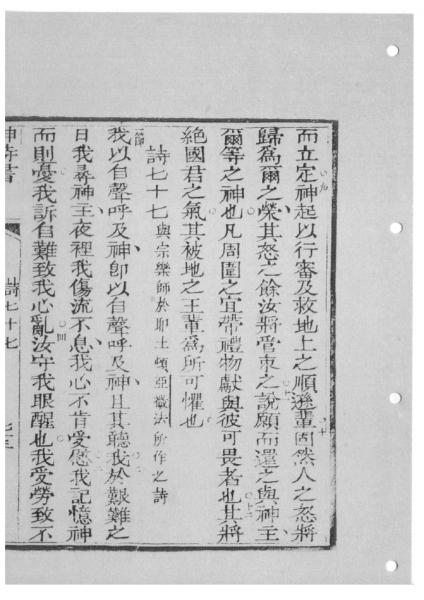 而立定神起以行審及救地上之順遜輩固然人之怒將
歸為爾之榮其怒之餘汝將管束之說願而還之與神主
爾等之神也凡周圍之宜帶禮物獻與彼可畏者也其將
絕國君之氣其被地之王輩為所可懼也
詩七十七 與宗樂師於耶土頓亞撒法所作之詩
我以自聲呼及神卽以自聲呼及神且其聽我於艱難之
日我尋神主夜裡我傷流不息我心不肯受慰我記憶神
而則憂我訴自難致我心亂汝守我眼醒也我受勞致不
神詩書 詩七十七